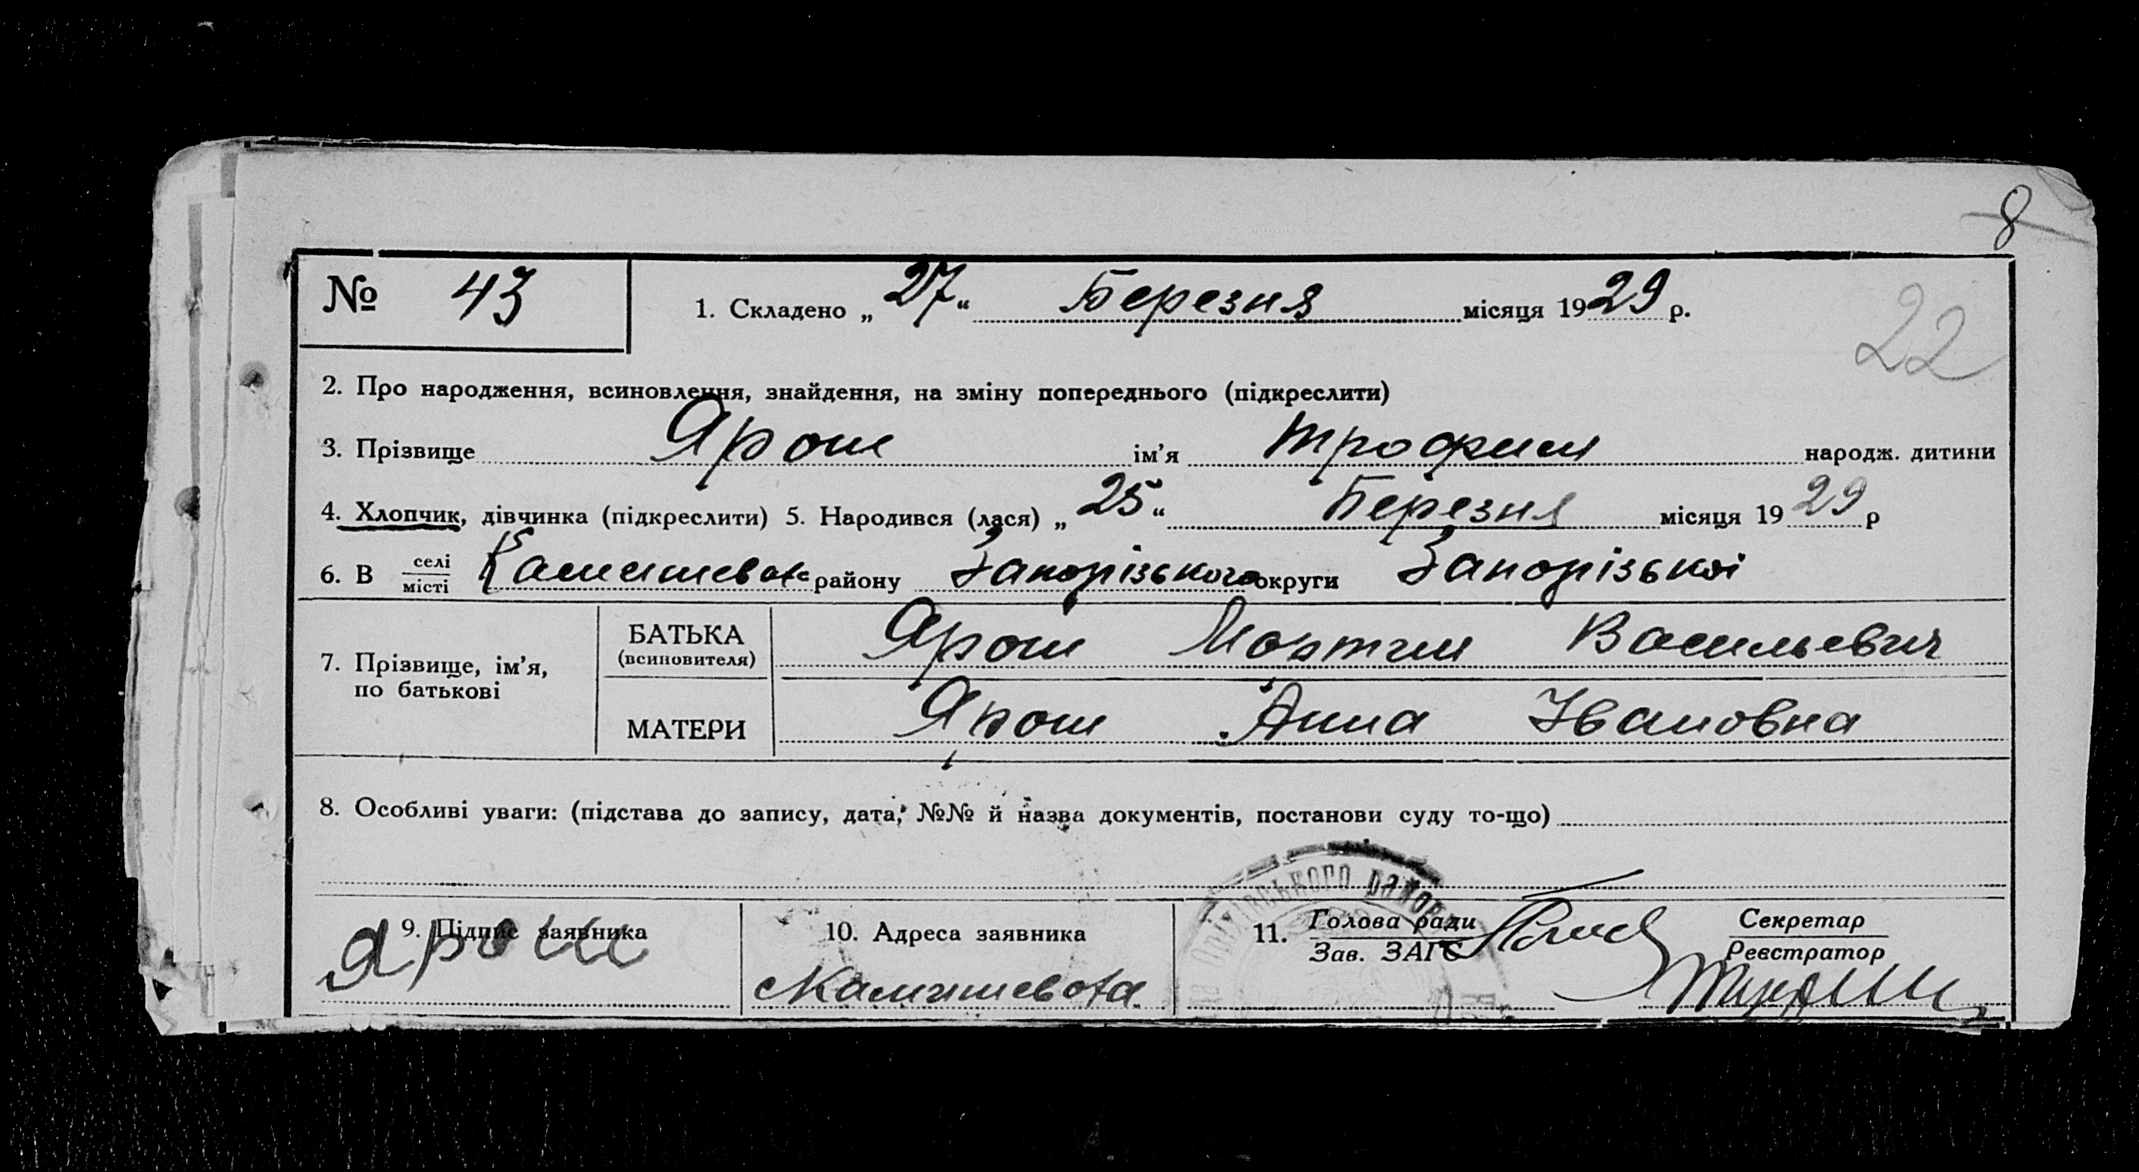 8
№ 43 1. Складено „ 27 “ Березня місяця 1929 р.
22
2. Про народження, всиновлення, знайдення, на зміну попереднього (підкреслити)
3. Прізвище Ярош ім’я Трофим народж. дитини
4. Хлопчик, дівчинка (підкреслити) 5. Народився (лася) „ 25 “ Березня місяця 1929 р
6. В селі місті Камишеваха району Запорізького округи Запорізької
7. Прізвище, ім’я, по батькові
БАТЬКА (всиновителя) Ярош Мартин Васильевич
МАТЕРИ Ярош Анна Івановна
8. Особливі уваги: (підстава до запису, дата, №№ й назва документів, постанови суду то-що)
9. Підпис заявника
Ярош
10. Адреса заявника
Камишеваха
11. Голова ради
Зав. ЗАГС
Секретар
Реєстратор
Оріхівського району